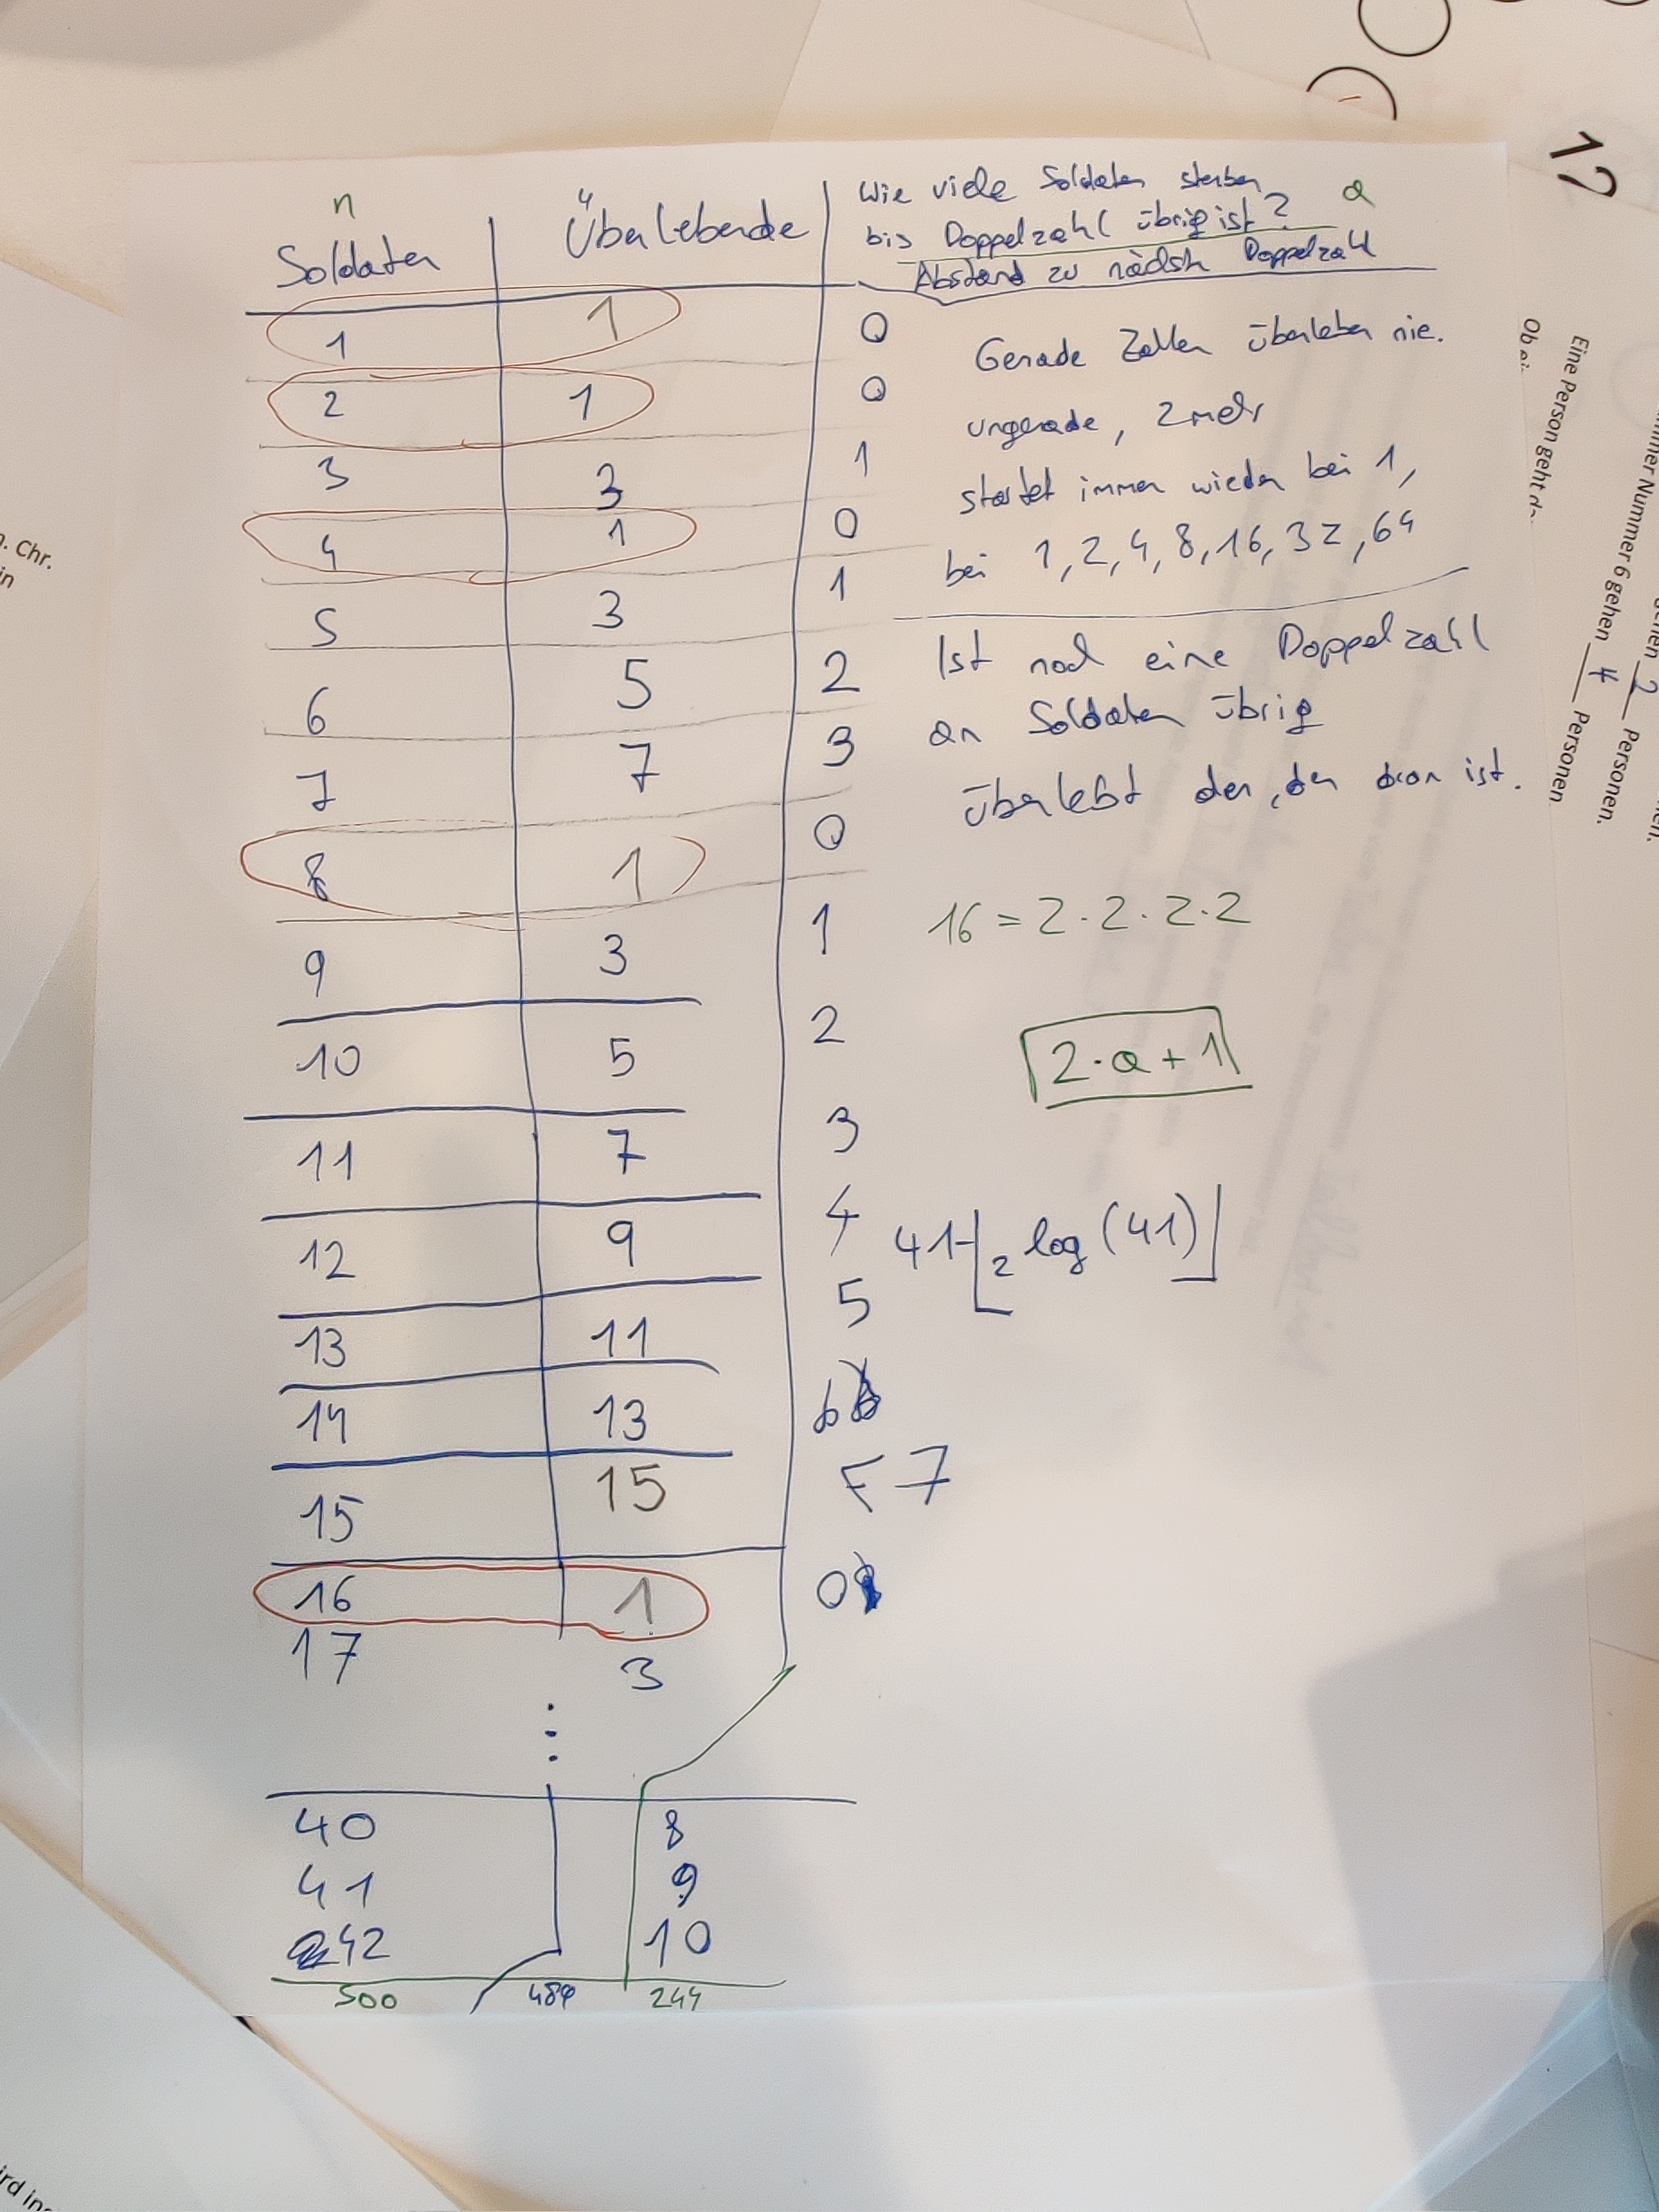 n
Soldaten Überlebende
Wie viele Soldaten sterben, a
bis Doppelzahl übrig ist?
Abstand zu nächste Doppelzahl
1 1 0
2 1 0
3 3 1
4 1 0
5 3 1
6 5 2
7 7 3
8 1 0
9 3 1
10 5 2
11 7 3
12 9 4
13 11 5
14 13 6
15 15 7
16 1 0
17 3
⋮
40 8
41 9
42 10
500 489 244
Gerade Zahlen überleben nie.
ungerade, 2 mehr
startet immer wieder bei 1,
bei 1, 2, 4, 8, 16, 32, 64
Ist noch eine Doppelzahl
an Soldaten übrig
überlebt der, der dran ist.
16 = 2·2·2·2
2·a+1
41-⌊2 log (41)⌋
12
Eine Person geht
Nummer 6 gehen 4 Personen
2 Personen.
n. Chr.
in